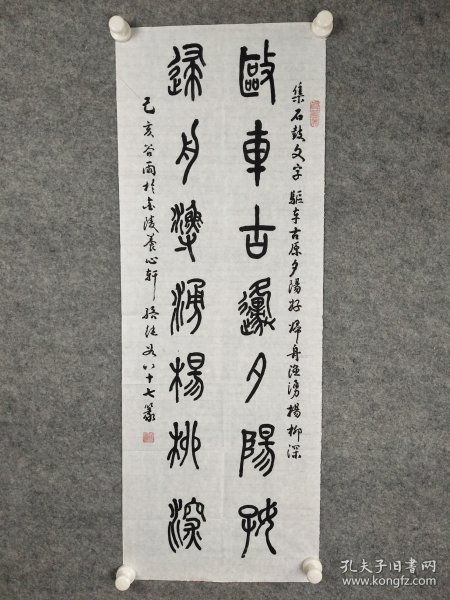 集石鼓文字 驅车古原夕陽好 歸舟渔湧楊柳深
敺車古邍夕陽好
歸舟漁湧楊柳深
己亥谷雨於金陵養心軒 八十七篆
孔夫子旧书网
www.kongfz.com